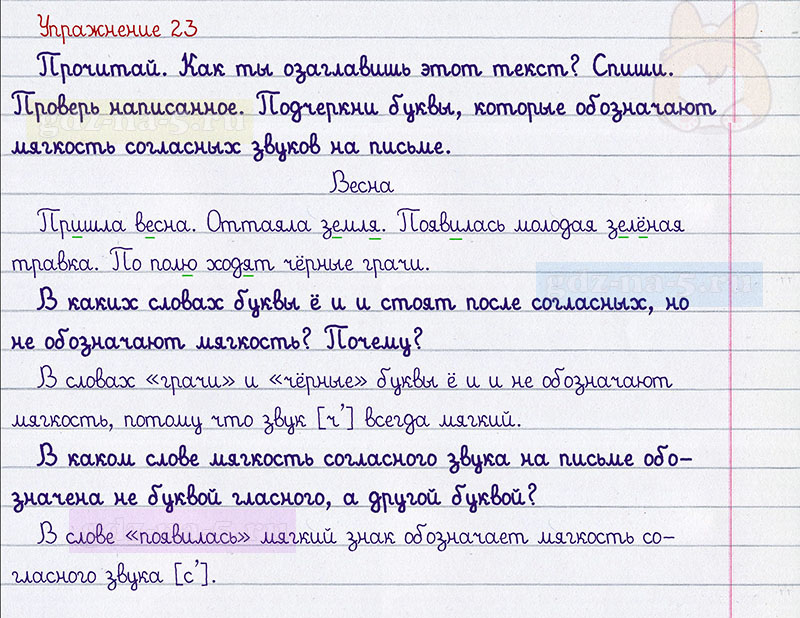 Упражнение 23
Прочитай. Как ты озаглавишь этот текст? Спиши.
Проверь написанное. Подчеркни буквы, которые обозначают
мягкость согласных звуков на письме.
Весна
Пришла весна. Оттаяла земля. Появилась молодая зелёная
травка. По полю ходят чёрные грачи.
В каких словах буквы ё и и стоят после согласных, но
не обозначают мягкость? Почему?
В словах «грачи» и «чёрные» буквы ё и и не обозначают
мягкость, потому что звук [ч'] всегда мягкий.
В каком слове мягкость согласного звука на письме обо-
значена не буквой гласного, а другой буквой?
В слове «появилась» мягкий знак обозначает мягкость со-
гласного звука [с'].
gdz-na-5.ru
gdz-na-5.ru
gdz-na-5.ru